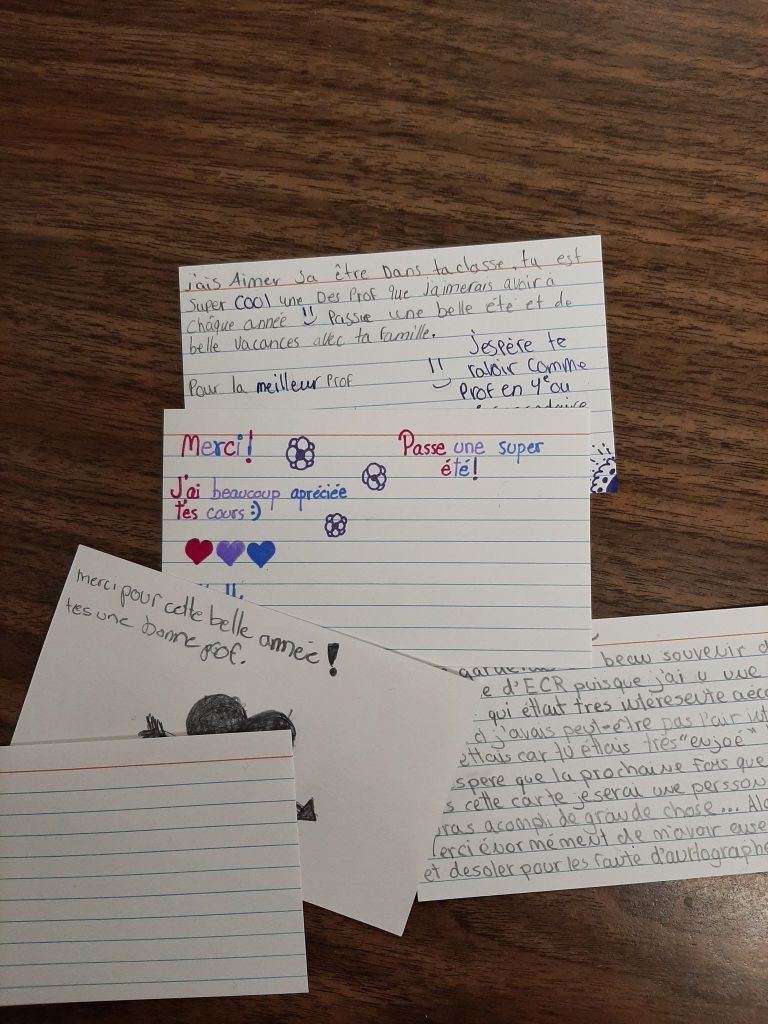 j'ais Aimer sa être Dans ta classe, tu est
super cool une Des Prof que j'aimerais avoir à
chaque année !! Passe une belle été et de
belle vacances avec ta famille.
Pour la meilleur Prof
!! j'espère te
ravoir comme
Prof en 4e ou
Merci!
Passe une super
été!
J'ai beaucoup apréciée
tes cours :)
merci pour cette belle année!
tes une bonne prof.
beau souvenir d
e d'ECR puisque j'ai u une
qui éttait tres intéresente aéco
j'avais peut-être pas l'air int
ettais car tu éttais très "enjoé"
spere que la prochaine fois que
s cette carte je serai une persson
ras acompli de grande chose... Alo
erci énormément de m'avoir ense
et desoler pour les faute d'aurtographe